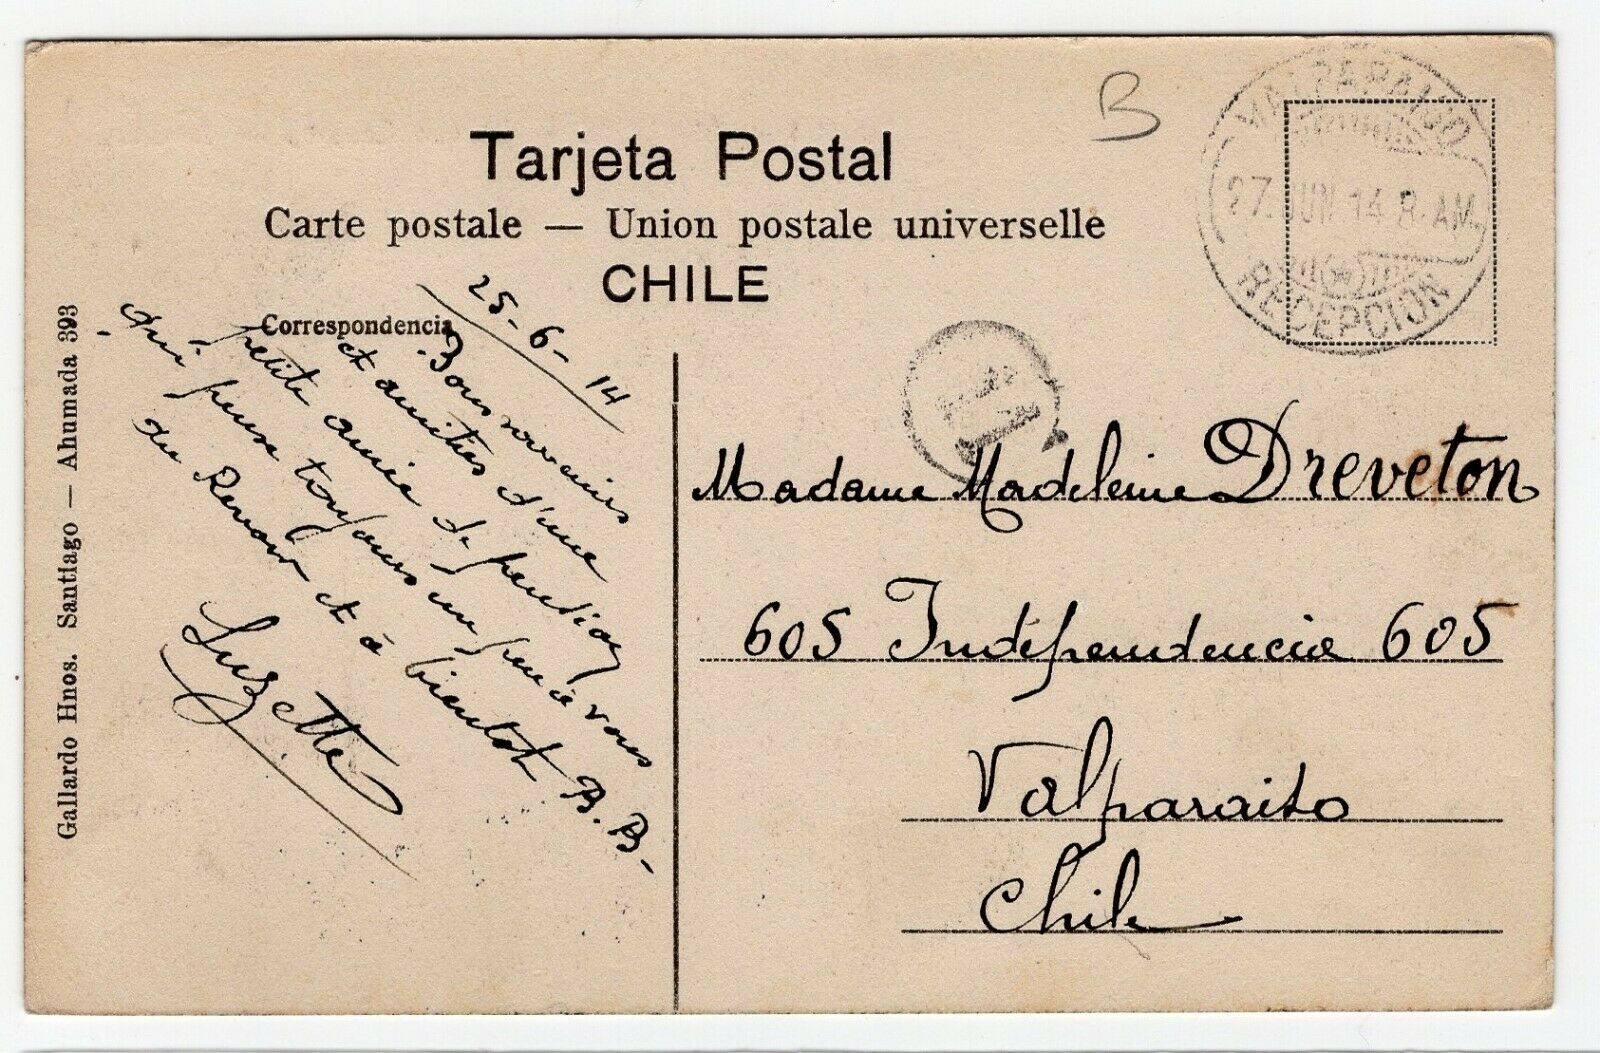 B
Tarjeta Postal
Carte postale — Union postale universelle
CHILE
Correspondencia
VALPARAISO
27. JUN 14 8. AM.
RECEPCION
25-6-14
Bons souvenirs
et amitiés d'une
petite amie de pension
qui pense toujours un peu à vous
Au Revoir et à bientôt B.B-
Suzette
Madame Madeleine Dreveton
605 Indépendencia 605
Valparaiso
Chile
Gallardo Hnos. Santiago — Ahumada 393